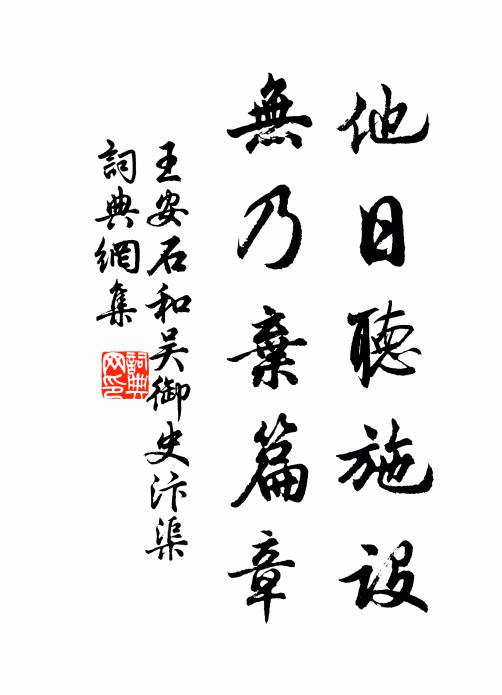 他日聽施設
無乃棄篇章
王安石和吳御史汴渠
詞典網集
詞典網印